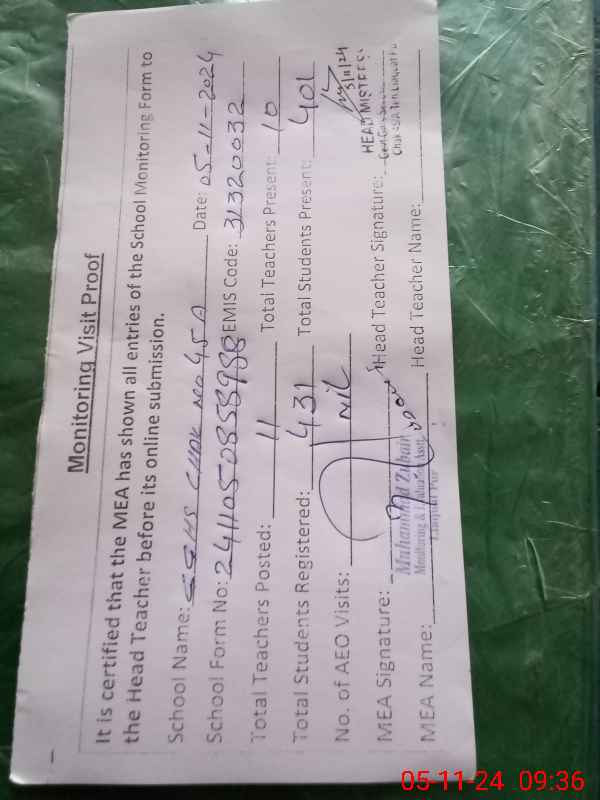 Monitoring Visit Proof
It is certified that the MEA has shown all entries of the School Monitoring Form to
the Head Teacher before its online submission.
School Name: GGHS CHAK NO 45 A Date: 05-11-2024
School Form No: 241105085898 EMIS Code: 31320032
Total Teachers Posted: 11 Total Teachers Present: 10
Total Students Registered: 431 Total Students Present: 401
No. of AEO Visits: NIL
MEA Signature: Head Teacher Signature:
HEAD MISTRESS
Muhammad Zubair
Monitoring & Evaluation Asstt.
Liaquat Pur
MEA Name: Head Teacher Name:
05-11-24 09:36